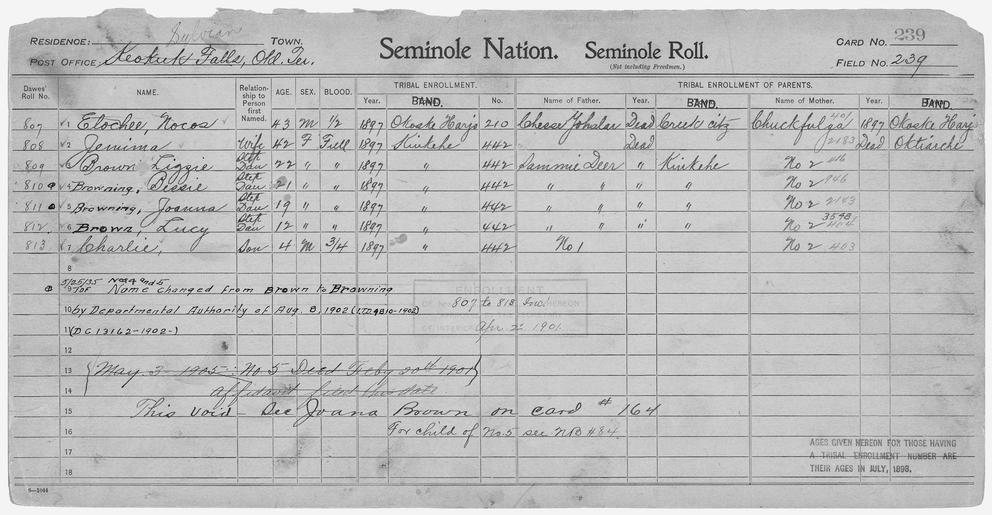 RESIDENCE: TOWN. Seminole Nation. Seminole Roll. CARD NO. 239
POST OFFICE, Keokuk Falls, Okl. Ter. (Not including Freedmen.) FIELD NO. 239
Dawes' Roll No. NAME. Relationship to Person first Named. AGE. SEX. BLOOD. TRIBAL ENROLLMENT. TRIBAL ENROLLMENT OF PARENTS.
Year. BAND. No. Name of Father. Year. BAND. Name of Mother. Year. BAND.
807 1 Elochee, Nocos 43 M 1/2 1897 Okoske Harjo 210 Chesse Yoholar Dead Creek city Chuckfulga 401 1897 Okoske Harjo
808 2 Jemima Wife 42 F Full 1897 Kinkehe 442 Dead 2183 Dead Oktiarche
809 3 Brown Lizzie Step Dau 22 " " 1897 " 442 Sammie Deer " Kinkehe No 2
810 4 Browning, Bessie Step Dau 21 " " 1897 " 442 " " " " No 2
811 5 Browning, Joanna Step Dau 19 " " 1897 " 442 " " " " No 2
812 6 Brown, Lucy Step Dau 12 " " 1897 " 442 " " " " No 2
813 7 Charlie, Son 4 M 3/4 1897 " 442 No 1 No 2 403
8
5/25/35 Nos 4 and 5
9 Name changed from Brown to Browning ENROLLMENT
807 to 813 Inc. HEREON
10 by Departmental Authority of Aug. 8, 1902 (I.T.D. 4810-1902)
11 (D C 13162-1902-) Apr 2 1901
12
13 May 3 1905: No 5 Died Feby 20th 1901
14 affidavit filed this date
15 This void - See Joana Brown on card # 164
16 For child of No. 5 see NB #84.
AGES GIVEN HEREON FOR THOSE HAVING
17 A TRIBAL ENROLLMENT NUMBER ARE
THEIR AGES IN JULY, 1898.
18